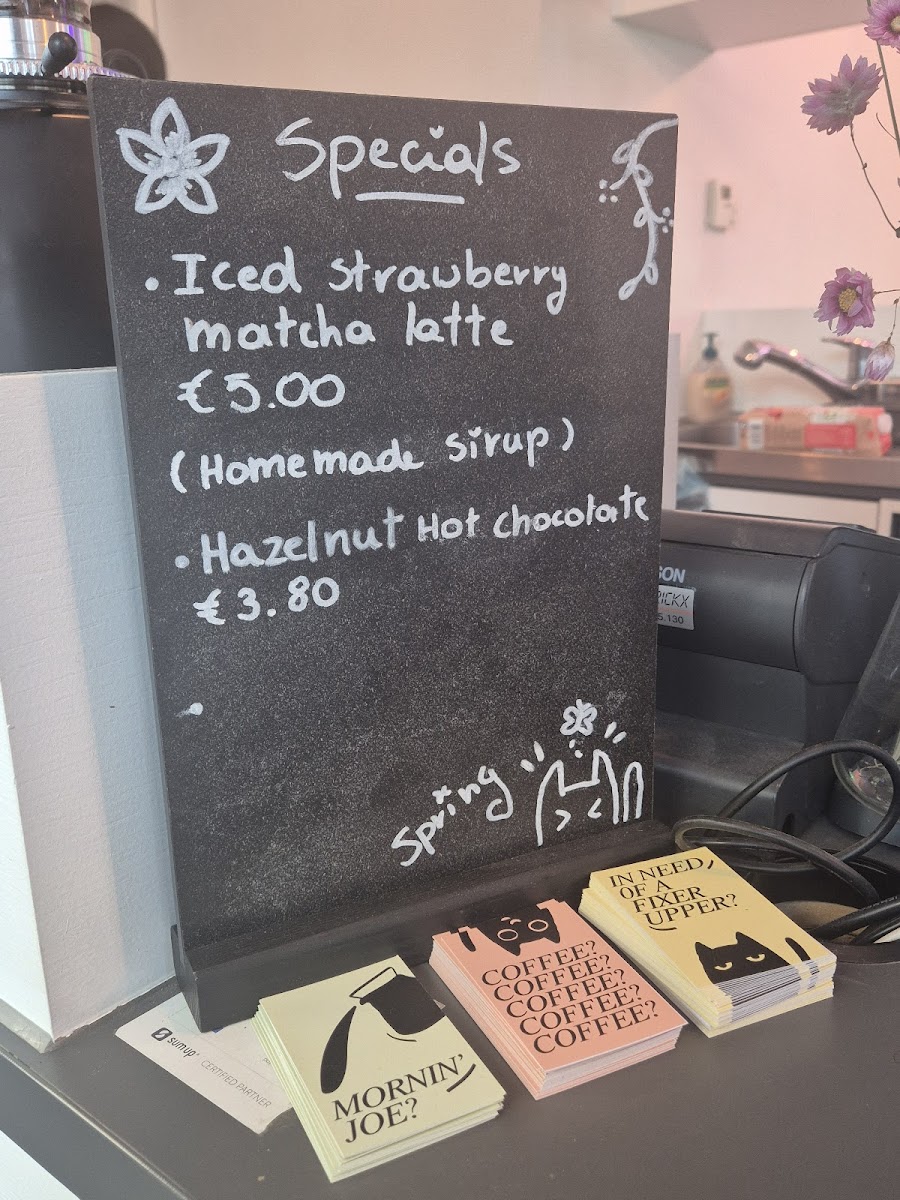 Specials
• Iced strawberry
matcha latte
€5.00
(Homemade sirup)
• Hazelnut Hot chocolate
€3.80
Spring
SON
5.130
sumup
CERTIFIED PARTNER
MORNIN'
JOE?
COFFEE?
COFFEE?
COFFEE?
COFFEE?
COFFEE?
IN NEED
OF A
FIXER
UPPER?